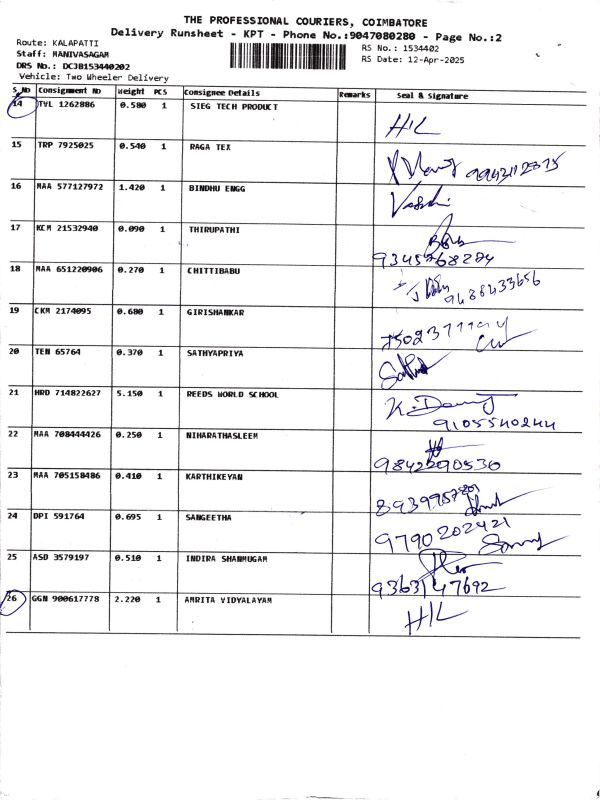 THE PROFESSIONAL COURIERS, COIMBATORE
Delivery Runsheet - KPT - Phone No.:9047080280 - Page No.:2
Route: KALAPATTI
RS No.: 1534402
Staff: MANIVASAGAM
RS Date: 12-Apr-2025
DRS No.: DCJB153440202
Vehicle: Two Wheeler Delivery
S_No Consignment No Weight PCS Consignee Details Remarks Seal & Signature
14 TYL 1262886 0.580 1 SIEG TECH PRODUCT
H/L
15 TRP 7925025 0.540 1 RAGA TEX
16 MAA 577127972 1.420 1 BINDHU ENGG
17 KCM 21532940 0.090 1 THIRUPATHI
18 MAA 651220906 0.270 1 CHITTIBABU
9488433656
19 CKM 2174095 0.680 1 GIRISHANKAR
20 TEN 65764 0.370 1 SATHYAPRIYA
21 HRD 714822627 5.150 1 REEDS WORLD SCHOOL
9105540244
22 MAA 708444426 0.250 1 NIHARATHASLEEM
23 MAA 705158486 0.410 1 KARTHIKEYAN
24 DPI 591764 0.695 1 SANGEETHA
9790202421
25 ASD 3579197 0.510 1 INDIRA SHANMUGAM
9363147692
26 GGN 900617778 2.220 1 AMRITA VIDYALAYAM
H/L